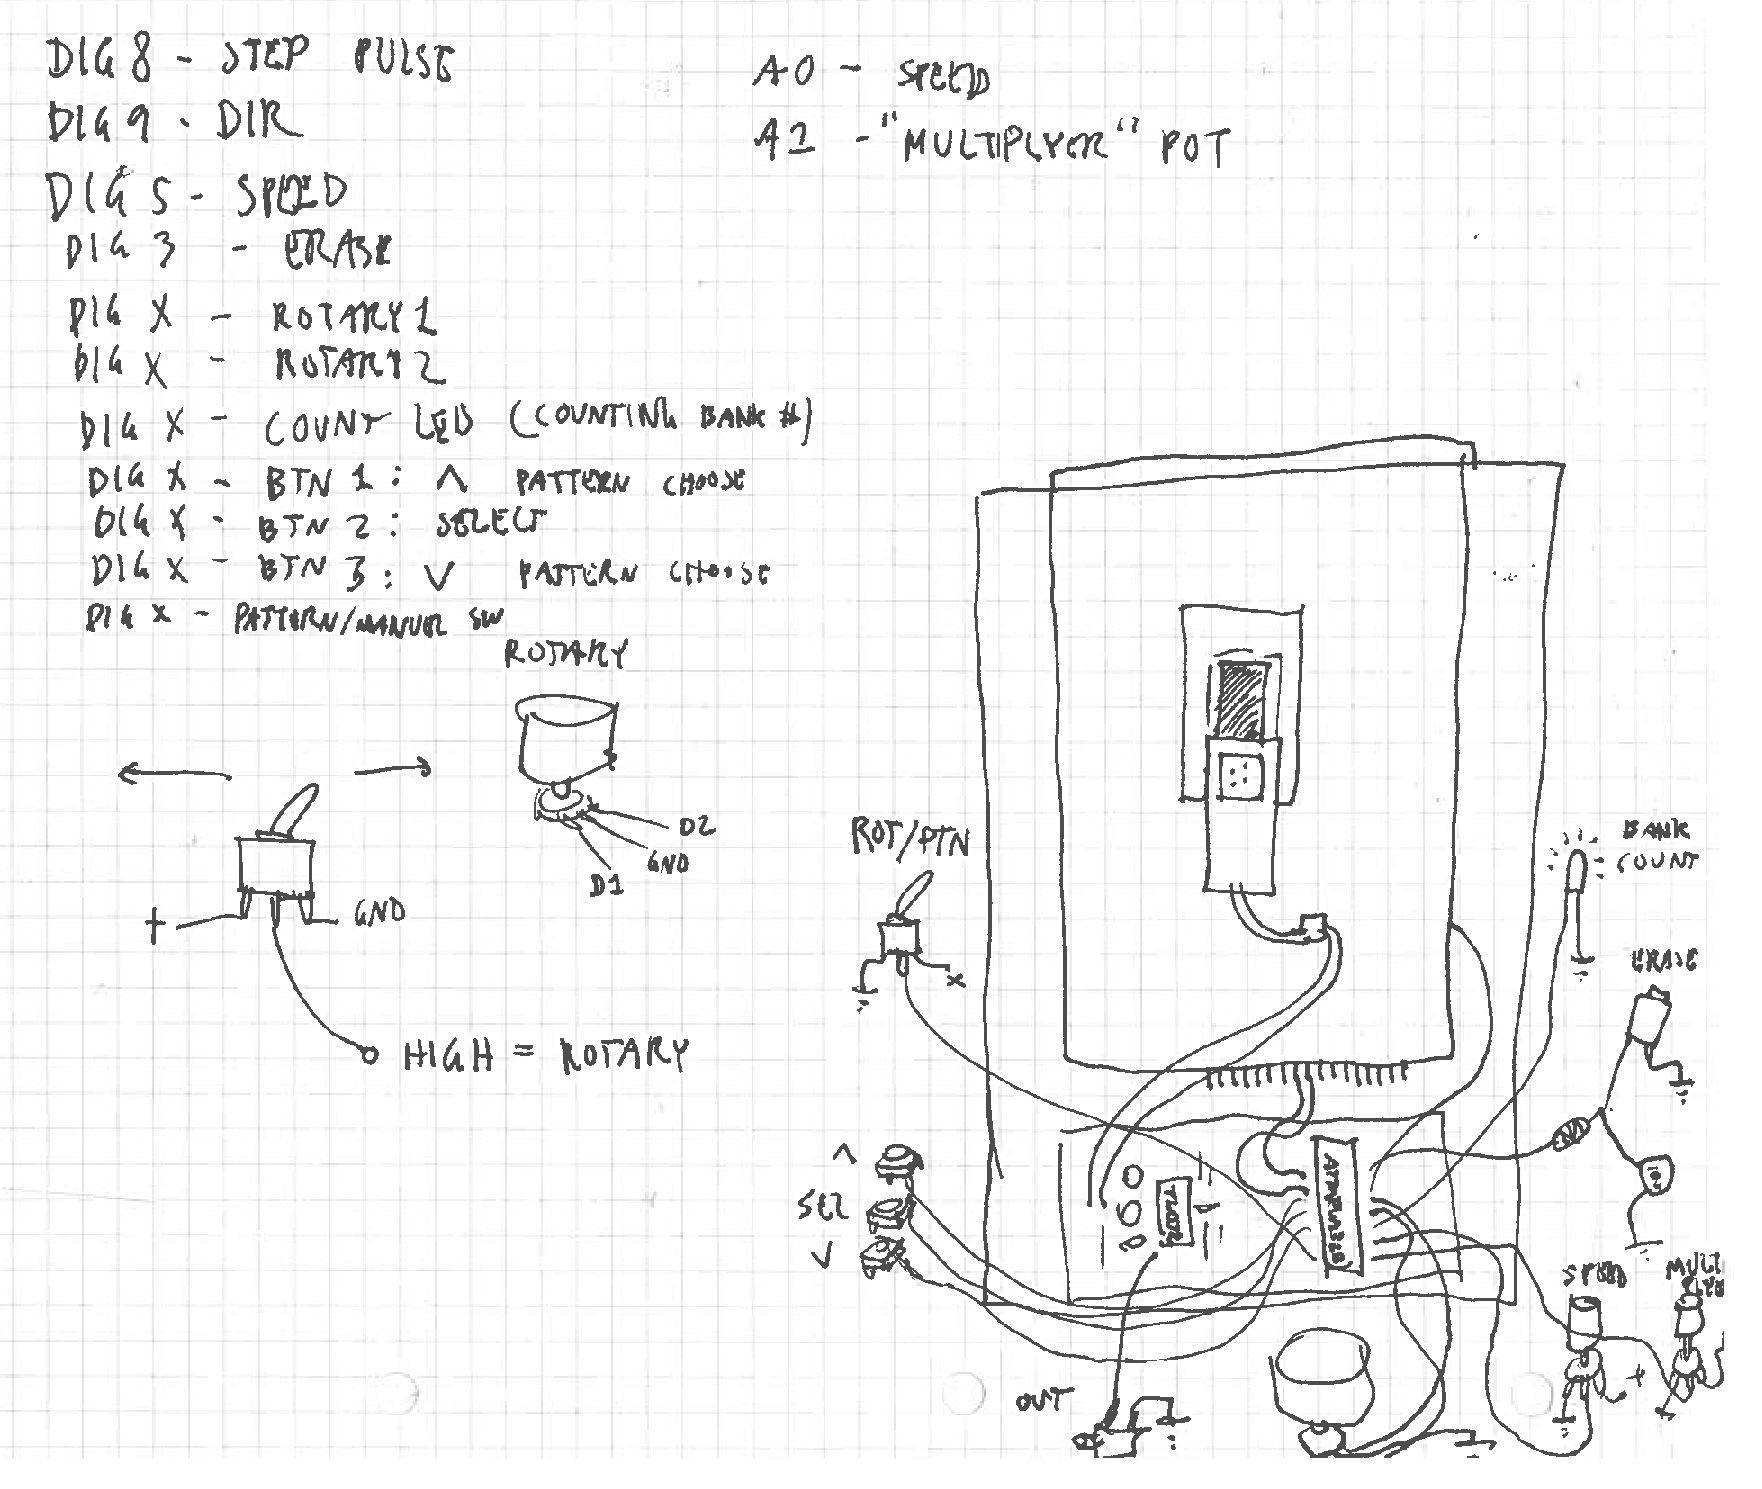 DIG 8 - STEP PULSE
DIG 9 - DIR
DIG 5 - SPEED
DIG 3 - ERASE
DIG X - ROTARY 1
DIG X - ROTARY 2
DIG X - COUNT LED (COUNTING BANK #)
DIG X - BTN 1: ^ PATTERN CHOOSE
DIG X - BTN 2: SELECT
DIG X - BTN 3: V PATTERN CHOOSE
DIG X - PATTERN/MANUEL SW
A0 - SPEED
A1 - "MULTIPLYER" POT
ROTARY
D2
GND
D1
+
GND
HIGH = ROTARY
ROT/PTN
X
BANK
COUNT
ERASE
^
SEL
V
OUT
SPEED
+
MULTI